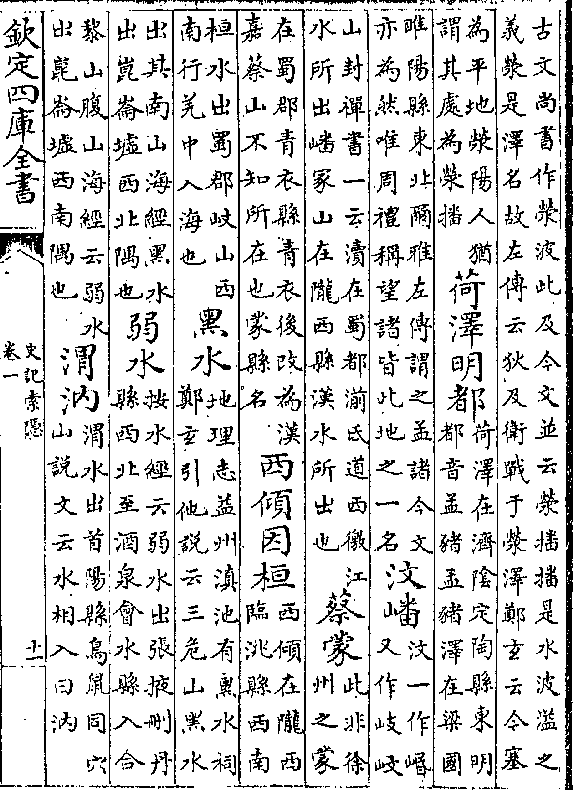 古文尚書作滎波此及今文並云滎播播是水波溢之
義滎是澤名故左傳云狄及衛戰于滎澤鄭玄云今塞
為平地滎陽人猶
謂其處為滎播
荷澤明都
荷澤在濟陰定陶縣東明
都音孟豬孟豬澤在梁國
睢陽縣東北爾雅左傳謂之孟諸今文
亦為然唯周禮稱望諸皆此地之一名
汶嶓
汶一作㟭
又作岐岐
山封禪書一云瀆在蜀都湔氐道西徼江
水所出嶓冢山在隴西縣漢水所出也
蔡蒙
此非徐
州之蒙
在蜀郡青衣縣青衣後改為漢
嘉蔡山不知所在也蒙縣名
西傾因桓
西傾在隴西
臨洮縣西南
桓水出蜀郡岐山西
南行羌中入海也
黑水
地理志益州滇池有黑水祠
鄭玄引他說云三危山黑水
出其南山海經黑水
出崑崙墟西北隅也
弱水
按水經云弱水出張掖刪丹
縣西北至酒泉會水縣入合
黎山腹山海經云弱水
出崑崙墟西南隅也
渭汭
渭水出首陽縣鳥鼠同穴
山說文云水相入曰汭
欽定四庫全書
史記索隱
卷一
十一